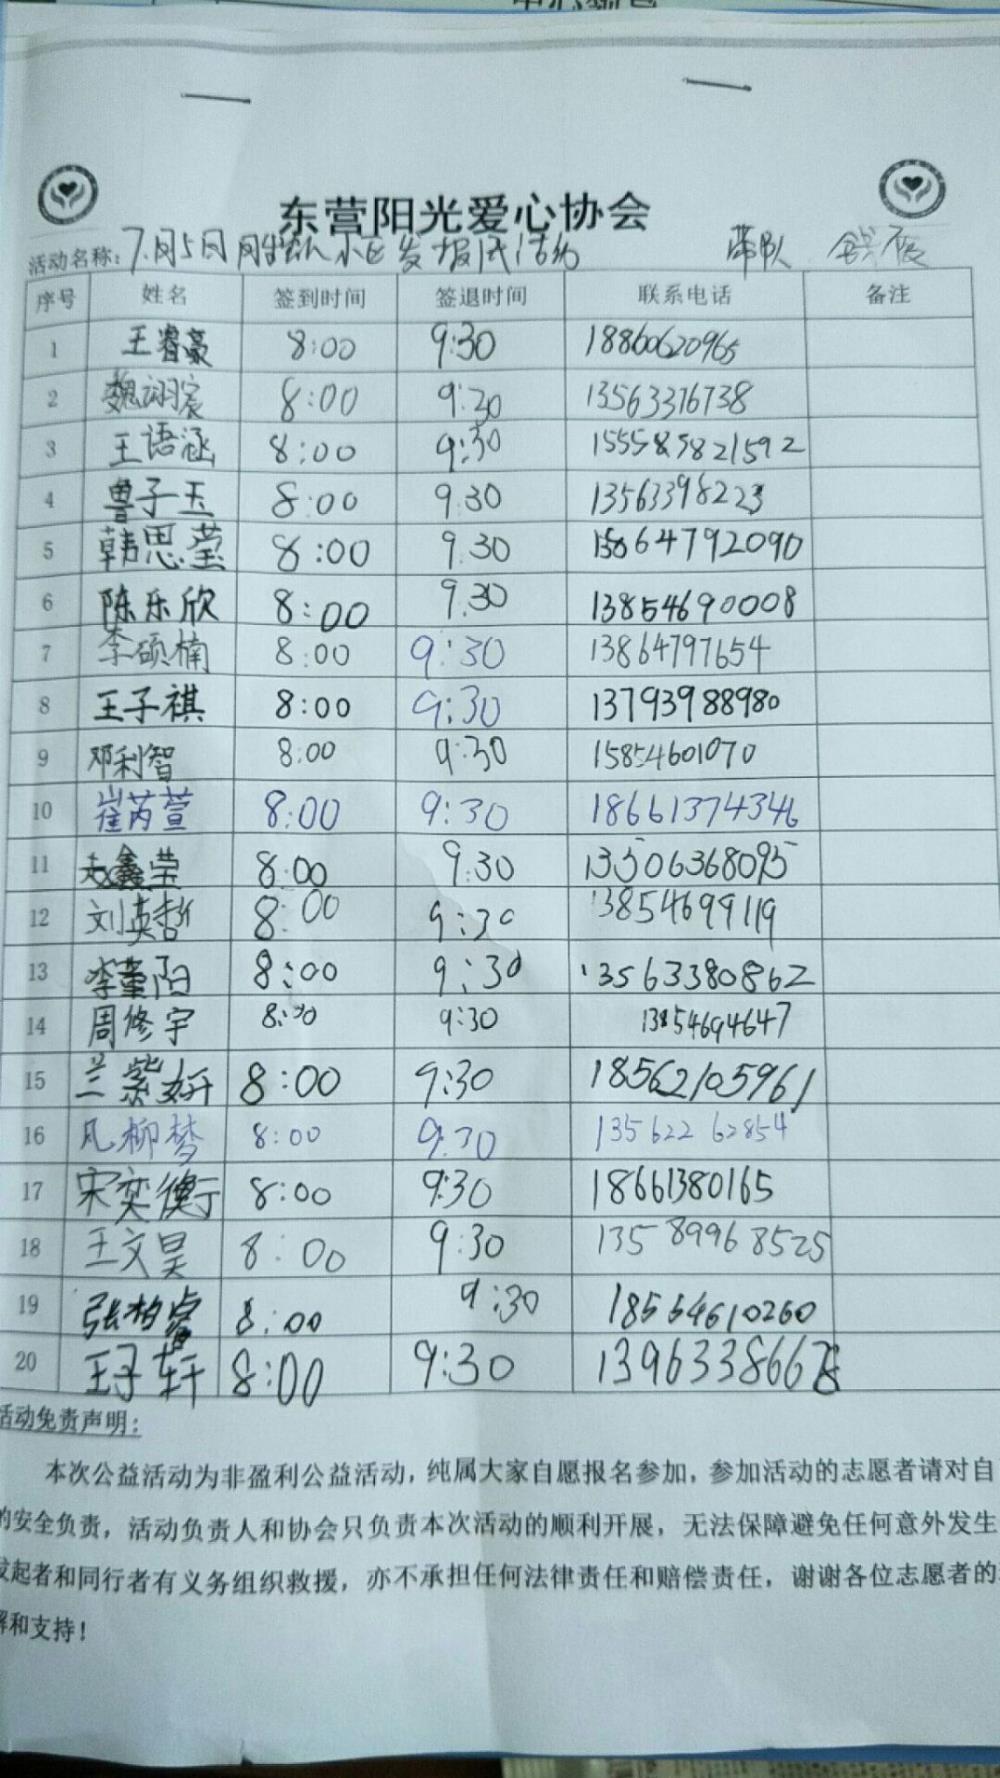 东营阳光爱心协会
活动名称: 7月5日 小区发报 活动 带队
序号 姓名 签到时间 签退时间 联系电话 备注
1 王睿豪 8:00 9:30 18860620965
2 魏诩宸 8:00 9:30 13563376738
3 王语涵 8:00 9:30 155585821592
4 鲁子玉 8:00 9:30 13563398223
5 韩思莹 8:00 9:30 13864792090
6 陈乐欣 8:00 9:30 13854690008
7 李硕楠 8:00 9:30 13864797654
8 王子祺 8:00 9:30 13793988980
9 邓利智 8:00 9:30 15854601070
10 崔芮萱 8:00 9:30 18661374346
11 赵鑫莹 8:00 9:30 13506368095
12 刘英哲 8:00 9:30 13854699119
13 李董阳 8:00 9:30 13563380862
14 周修宇 8:30 9:30 13854694647
15 兰紫妍 8:00 9:30 18562105961
16 凡柳梦 8:00 9:30 13562262854
17 宋奕衡 8:00 9:30 18661380165
18 王文昊 8:00 9:30 13589968525
19 张柏睿 8:00 9:30 18564610260
20 王子轩 8:00 9:30 13963386678
活动免责声明:
本次公益活动为非盈利公益活动，纯属大家自愿报名参加，参加活动的志愿者请对自
的安全负责，活动负责人和协会只负责本次活动的顺利开展，无法保障避免任何意外发生
发起者和同行者有义务组织救援，亦不承担任何法律责任和赔偿责任，谢谢各位志愿者的
解和支持！